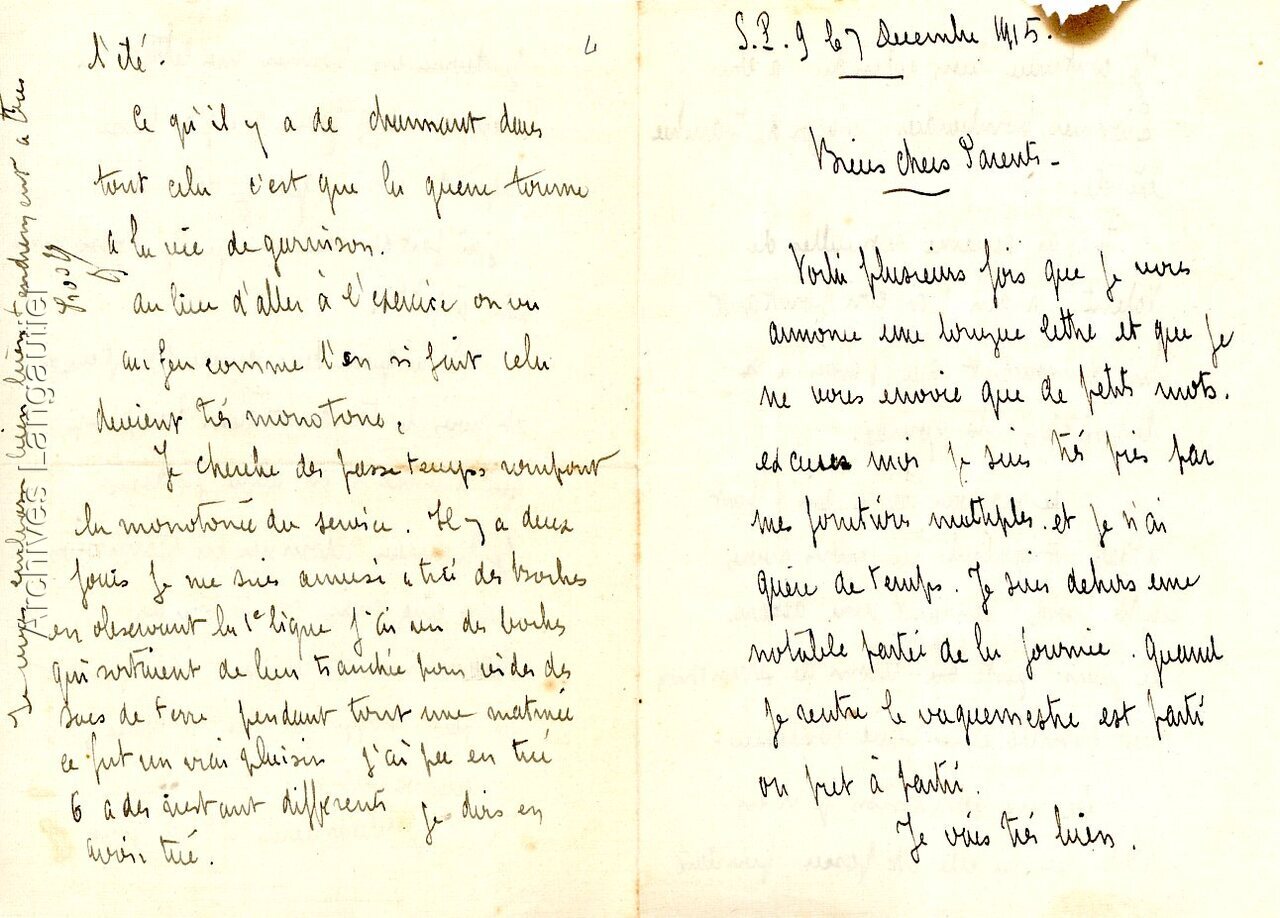 S.P. 9 le 7 Decembre 1915.
Biens chers Parents -
Voila plusieurs fois que je vous
annonce une longue lettre et que je
ne vous envoie que de petits mots.
excuses moi je suis très pris par
mes fonctions multiples. et je n'ai
guère de temps. Je suis dehors une
notable partie de la journée. Quand
je rentre le vaguemestre est parti
ou pret à partir.
Je vais très bien.
4
l'été.
Ce qu'il y a de charmant dans
tout cela c'est que la guerre tourne
a la vie de garnison.
au lieu d'aller à l'exercice on va
au feu comme l'on si fait cela
devient très monotone.
Je cherche des passe temps rompant
la monotonie du service. Il y a deux
jours je me suis amusé a tué des boches
en observant la 1e ligne j'ai vu des boches
qui sortaient de leur tranchée pour vider des
sacs de terre pendant tout une matinée
ce fut un vrai plaisir j'ai pu en tué
6 a des instant différents je dois en
avoir tué.
Je vous embrasse bien bien tendrement a tous
Archives Langautier